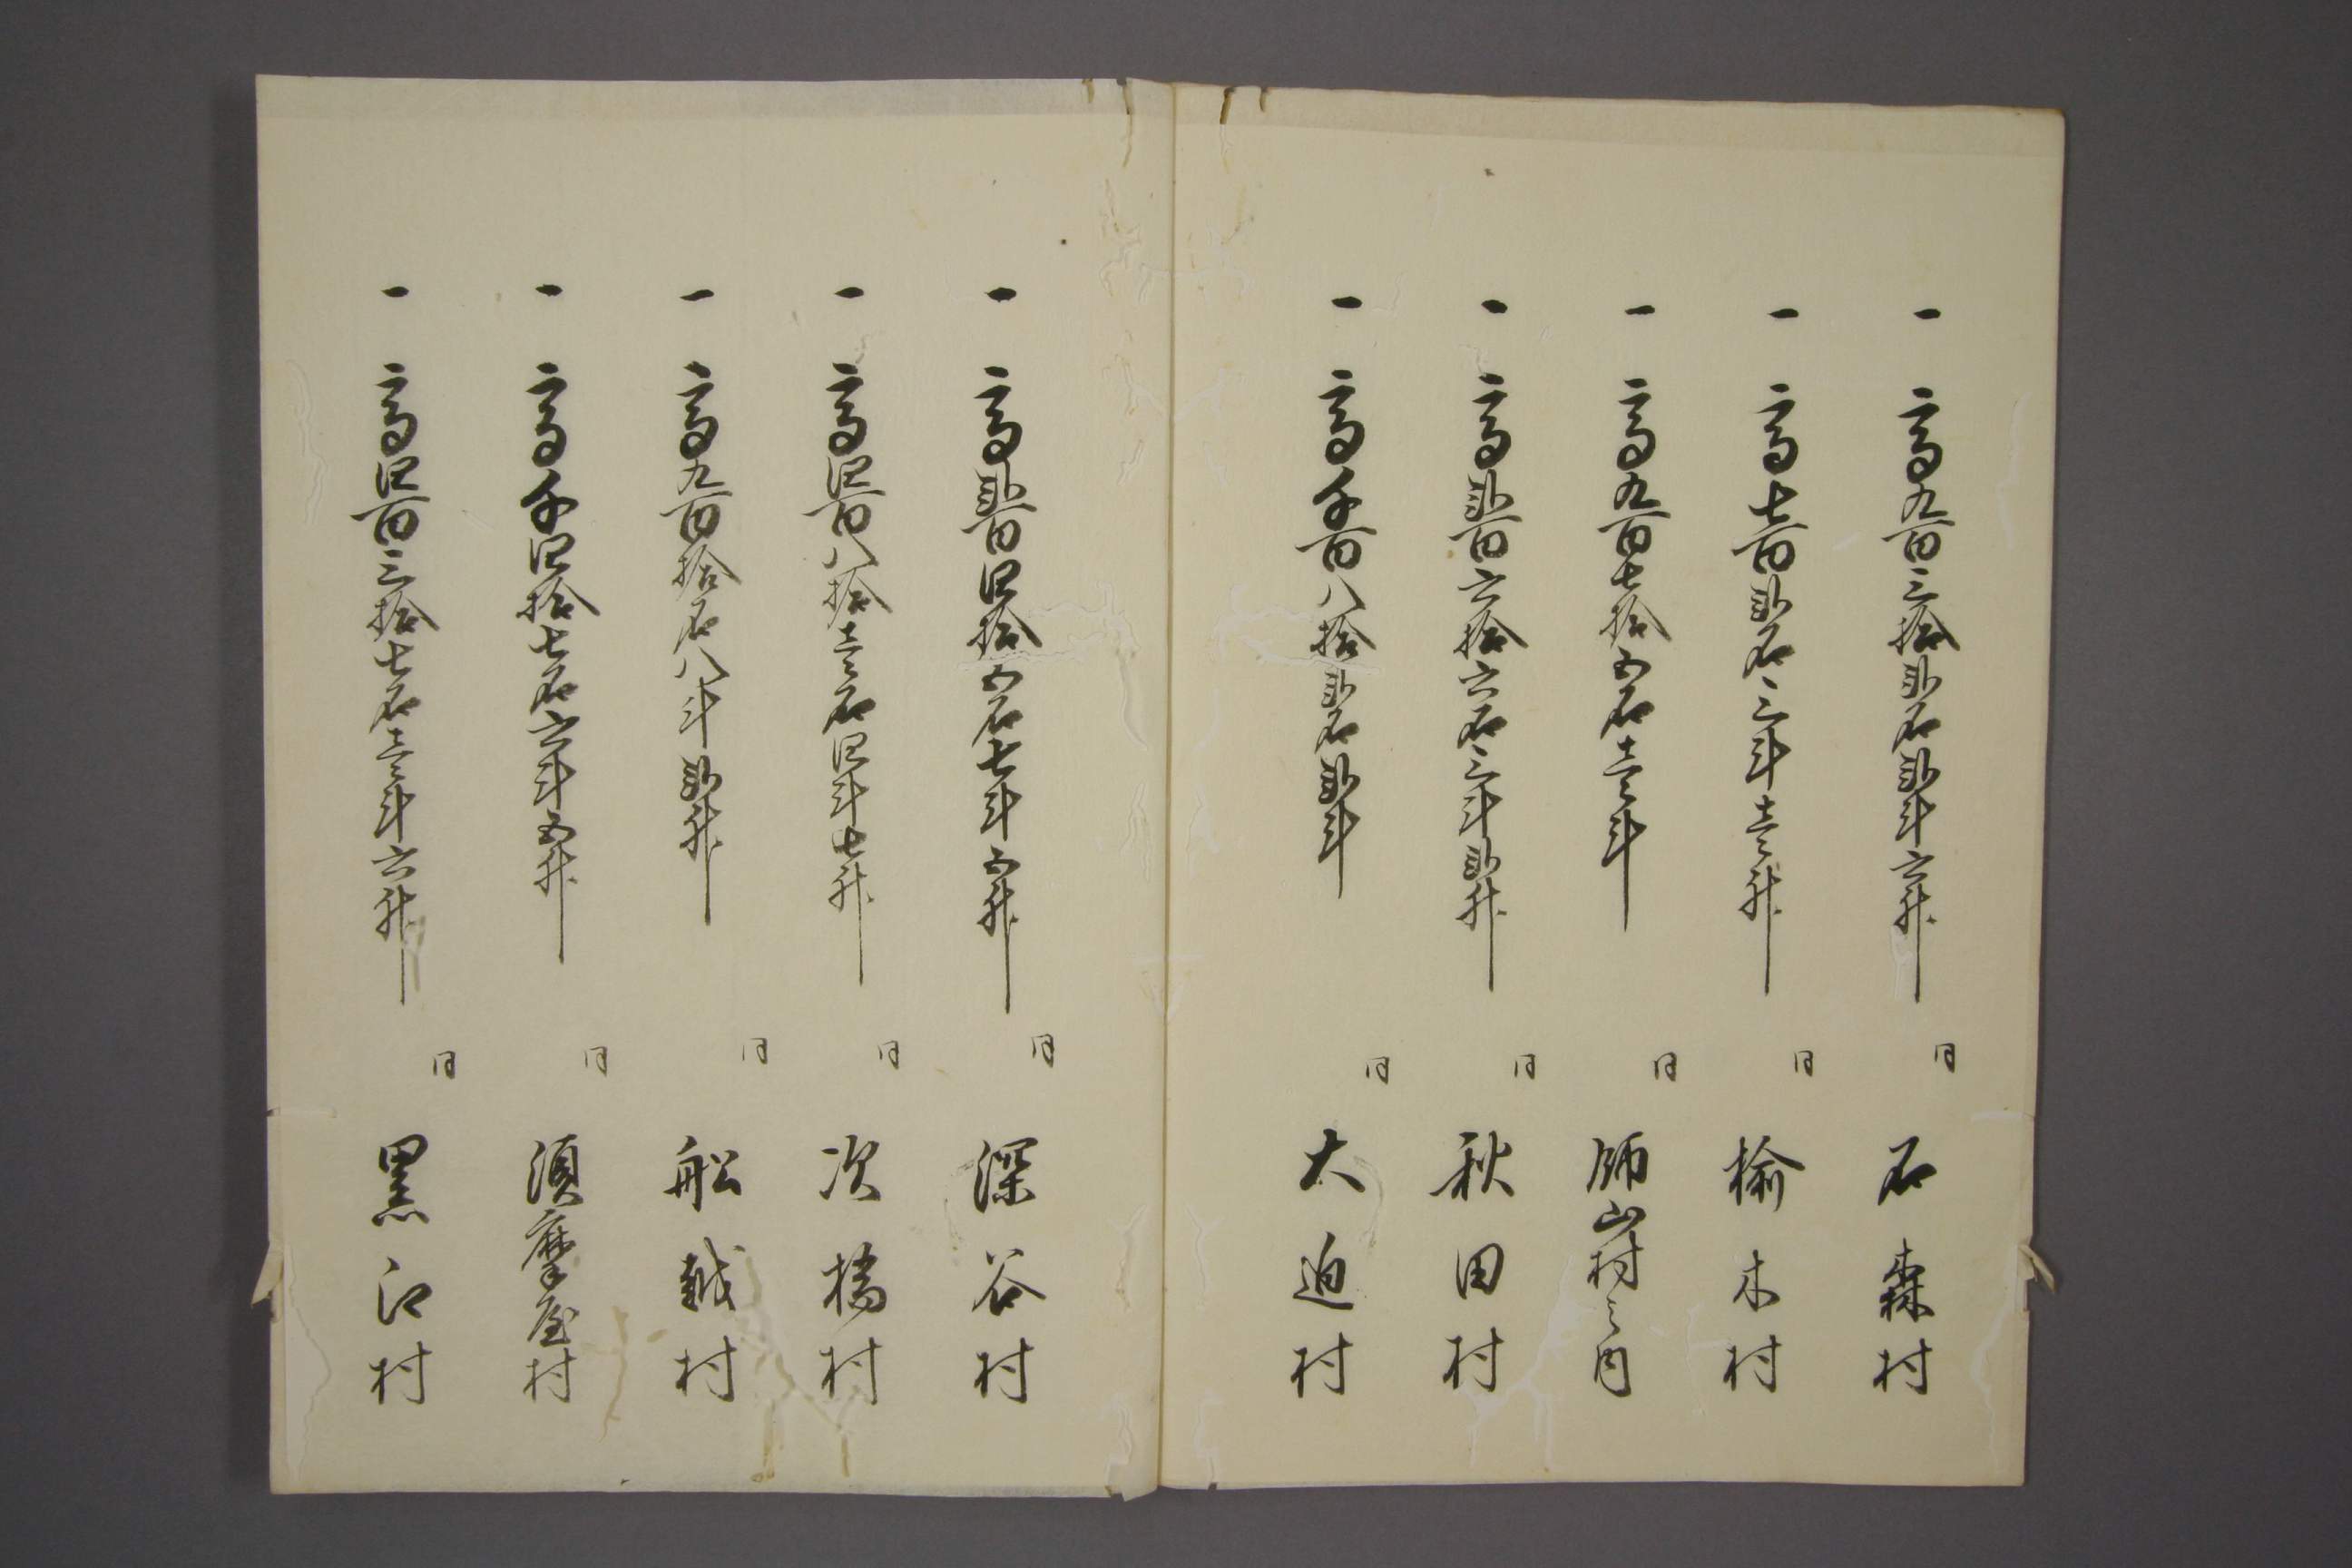 一 高九百三拾弐石弐斗六升 同 石森村
一 高七百弐石三斗壱升 同 楡木村
一 高九百七拾五石壱斗 同 師山村之内
一 高弐百六拾六石三斗弐升 同 秋田村
一 高千百八拾弐石弐斗 同 大迫村
一 高弐百四拾五石七斗五升 同 深谷村
一 高四百八拾壱石四斗七升 同 次橋村
一 高九百拾石八斗弐升 同 船越村
一 高千四拾七石六斗五升 同 須摩屋村
一 高四百三拾七石壱斗六升 同 黒江村